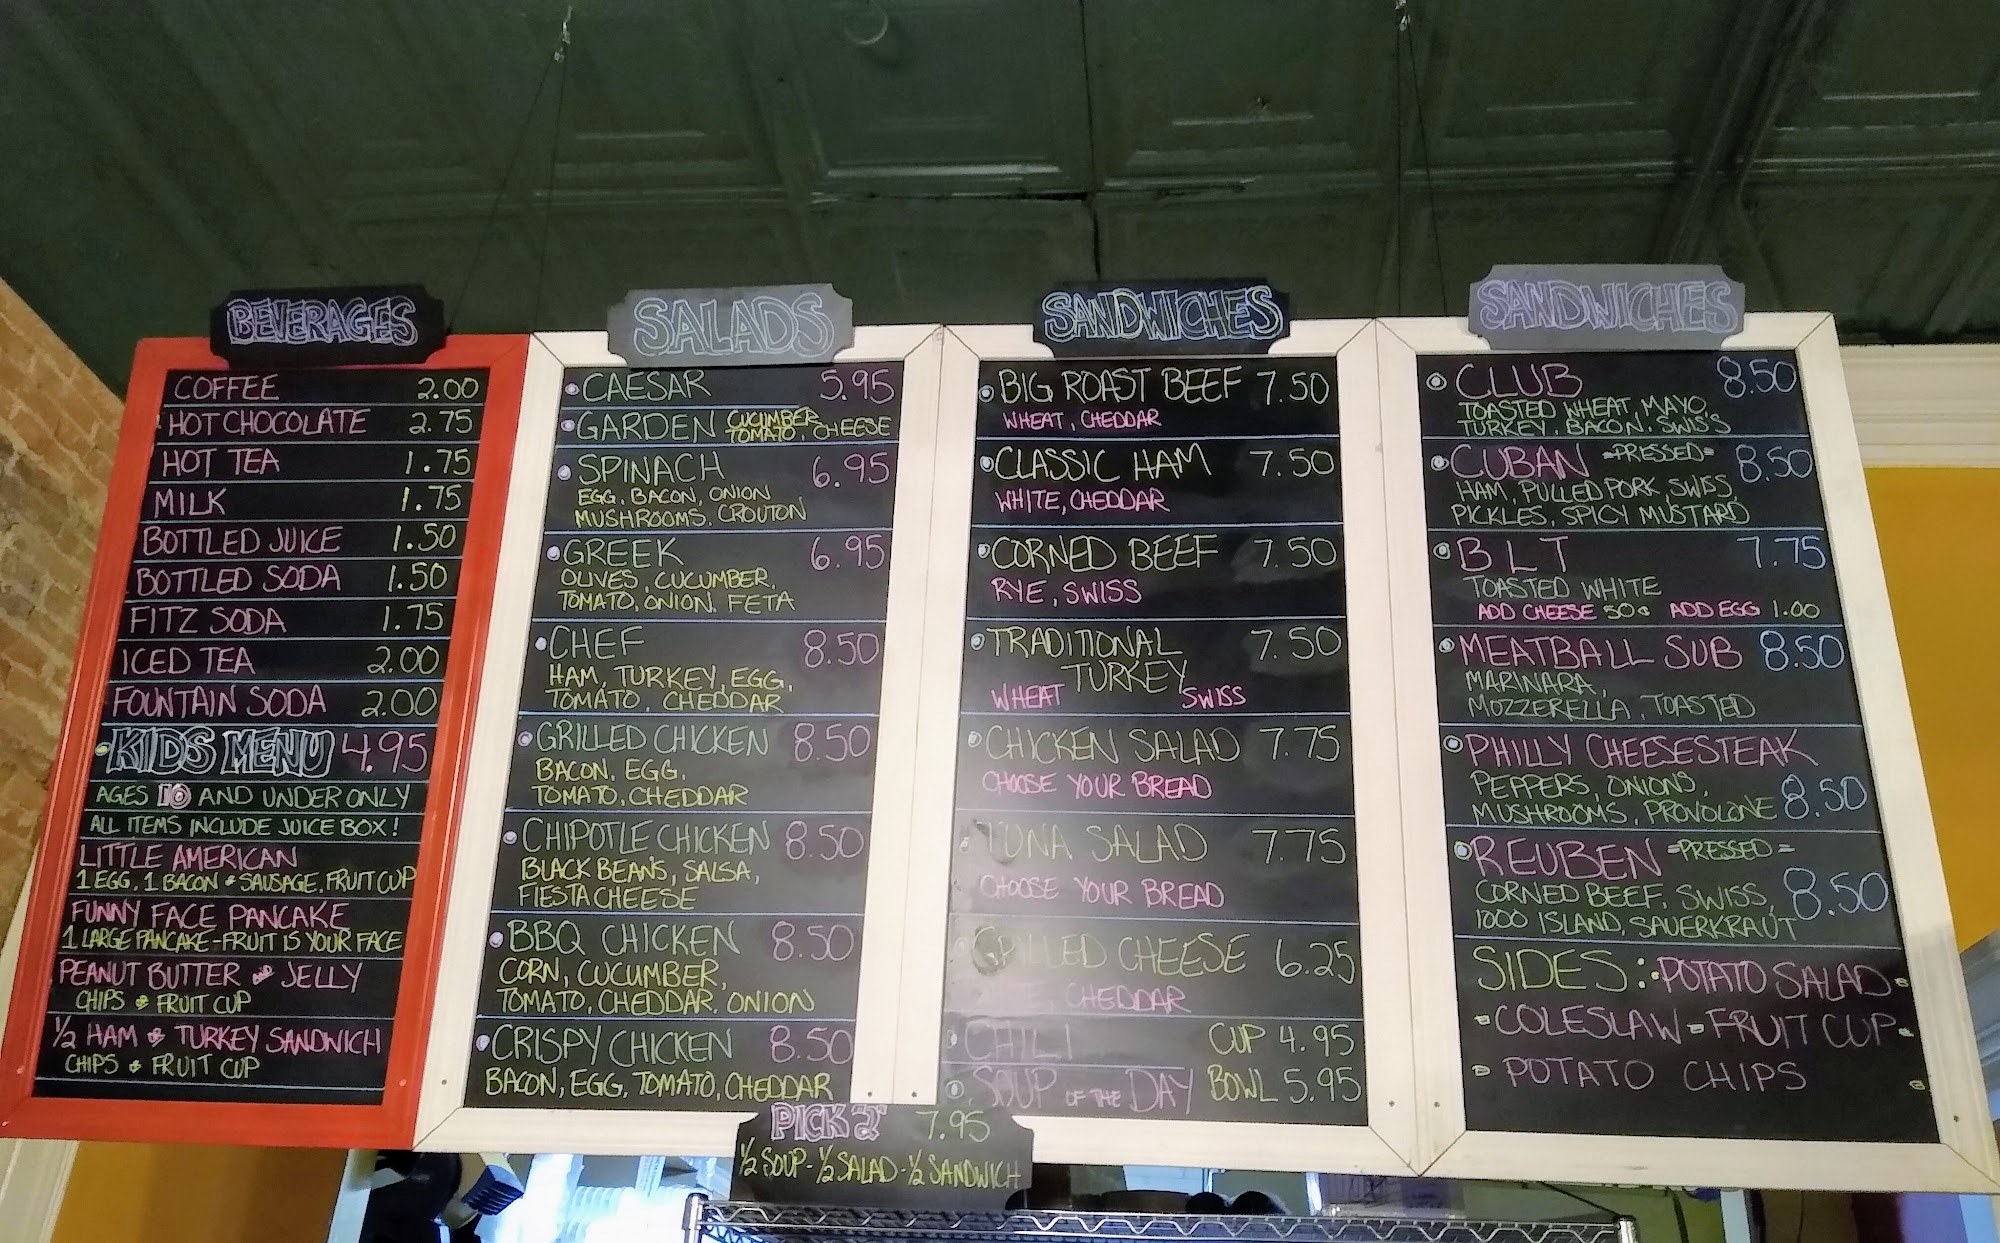 BEVERAGES
COFFEE 2.00
HOT CHOCOLATE 2.75
HOT TEA 1.75
MILK 1.75
BOTTLED JUICE 1.50
BOTTLED SODA 1.50
FITZ SODA 1.75
ICED TEA 2.00
FOUNTAIN SODA 2.00
KIDS MENU 4.95
AGES 10 AND UNDER ONLY
ALL ITEMS INCLUDE JUICE BOX!
LITTLE AMERICAN
1 EGG, 1 BACON SAUSAGE, FRUIT CUP
FUNNY FACE PANCAKE
1 LARGE PANCAKE - FRUIT IS YOUR FACE
PEANUT BUTTER AND JELLY
CHIPS & FRUIT CUP
1/2 HAM TURKEY SANDWICH
CHIPS & FRUIT CUP
SALADS
CAESAR 5.95
GARDEN CUCUMBER
TOMATO, CHEESE
SPINACH 6.95
EGG, BACON, ONION
MUSHROOMS, CROUTON
GREEK 6.95
OLIVES, CUCUMBER,
TOMATO, ONION, FETA
CHEF 8.50
HAM, TURKEY, EGG,
TOMATO, CHEDDAR
GRILLED CHICKEN 8.50
BACON, EGG,
TOMATO, CHEDDAR
CHIPOTLE CHICKEN 8.50
BLACK BEANS, SALSA,
FIESTA CHEESE
BBQ CHICKEN 8.50
CORN, CUCUMBER,
TOMATO, CHEDDAR, ONION
CRISPY CHICKEN 8.50
BACON, EGG, TOMATO, CHEDDAR
PICK 2 7.95
1/2 SOUP - 1/2 SALAD - 1/2 SANDWICH
SANDWICHES
BIG ROAST BEEF 7.50
WHEAT, CHEDDAR
CLASSIC HAM 7.50
WHITE, CHEDDAR
CORNED BEEF 7.50
RYE, SWISS
TRADITIONAL 7.50
TURKEY
WHEAT SWISS
CHICKEN SALAD 7.75
CHOOSE YOUR BREAD
TUNA SALAD 7.75
CHOOSE YOUR BREAD
GRILLED CHEESE 6.25
CHEDDAR
CHILI CUP 4.95
SOUP OF THE DAY BOWL 5.95
SANDWICHES
CLUB 8.50
TOASTED WHEAT, MAYO,
TURKEY, BACON, SWISS
CUBAN =PRESSED= 8.50
HAM, PULLED PORK, SWISS,
PICKLES, SPICY MUSTARD
BLT 7.75
TOASTED WHITE
ADD CHEESE 50¢ ADD EGG 1.00
MEATBALL SUB 8.50
MARINARA,
MOZZERELLA, TOASTED
PHILLY CHEESESTEAK
PEPPERS, ONIONS,
MUSHROOMS, PROVOLONE 8.50
REUBEN =PRESSED=
CORNED BEEF, SWISS, 8.50
1000 ISLAND, SAUERKRAUT
SIDES: POTATO SALAD -
- COLESLAW - FRUIT CUP -
- POTATO CHIPS -